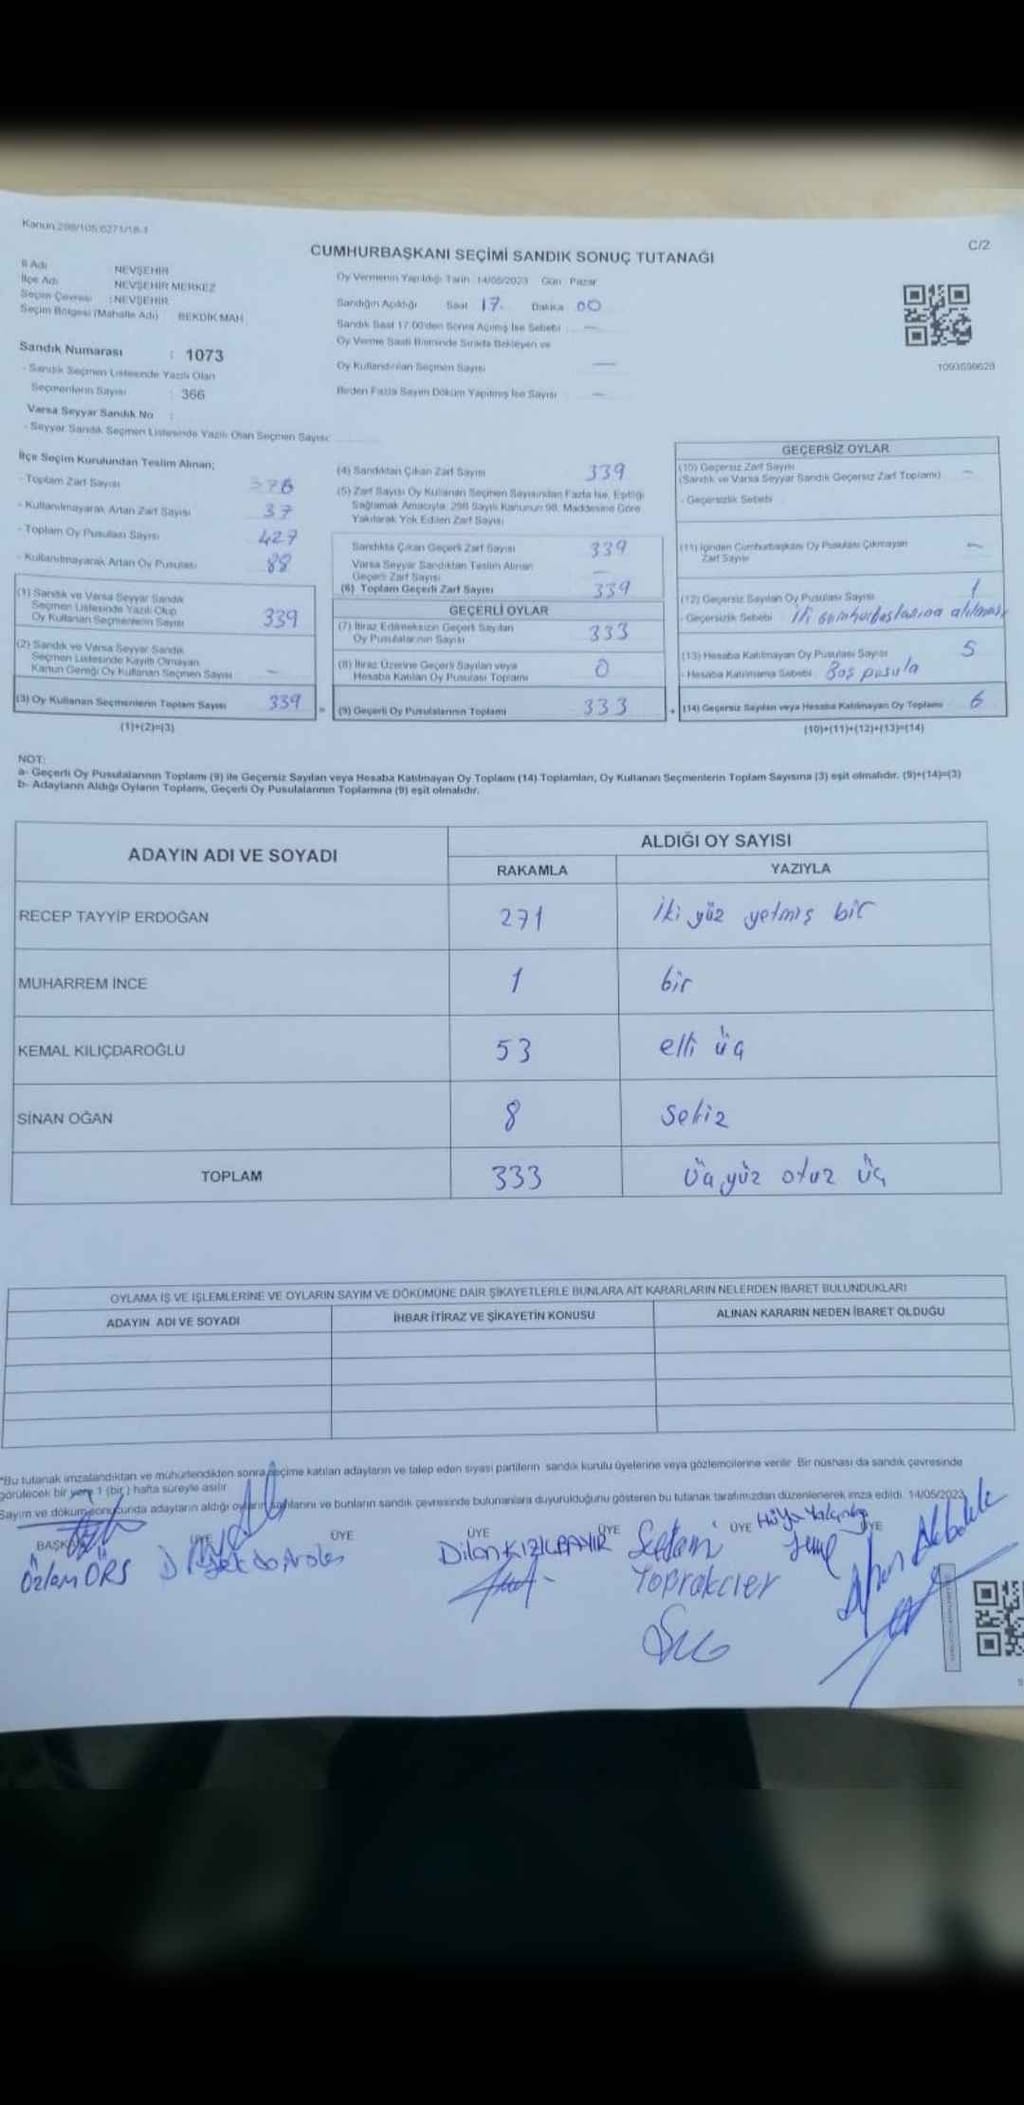 Kanun:298/105;6271/18-1
C/2
CUMHURBAŞKANI SEÇİMİ SANDIK SONUÇ TUTANAĞI
İl Adı NEVŞEHİR
İlçe Adı NEVŞEHİR MERKEZ
Seçim Çevresi : NEVŞEHİR
Seçim Bölgesi (Mahalle Adı) BEKDİK MAH.
Sandık Numarası : 1073
- Sandık Seçmen Listesinde Yazılı Olan
Seçmenlerin Sayısı : 366
Varsa Seyyar Sandık No :
- Seyyar Sandık Seçmen Listesinde Yazılı Olan Seçmen Sayısı:
Oy Vermenin Yapıldığı Tarih 14/05/2023 Gün Pazar
Sandığın Açıldığı Saat 17. Dakika 00
Sandık Saat 17.00'den Sonra Açılmış İse Sebebi —
Oy Verme Saati Bitiminde Sırada Bekleyen ve
Oy Kullandırılan Seçmen Sayısı —
Birden Fazla Sayım Döküm Yapılmış İse Sayısı —
1093598628
İlçe Seçim Kurulundan Teslim Alınan;
- Toplam Zarf Sayısı 376
- Kullanılmayarak Artan Zarf Sayısı 37
- Toplam Oy Pusulası Sayısı 427
- Kullanılmayarak Artan Oy Pusulası 88
(1) Sandık ve Varsa Seyyar Sandık
Seçmen Listesinde Yazılı Olup
Oy Kullanan Seçmenlerin Sayısı 339
(2) Sandık ve Varsa Seyyar Sandık
Seçmen Listesinde Kayıtlı Olmayan
Kanun Gereği Oy Kullanan Seçmen Sayısı —
(3) Oy Kullanan Seçmenlerin Toplam Sayısı 339
(1)+(2)=(3)
(4) Sandıktan Çıkan Zarf Sayısı 339
(5) Zarf Sayısı Oy Kullanan Seçmen Sayısından Fazla İse, Eşitliği
Sağlamak Amacıyla, 298 Sayılı Kanunun 98. Maddesine Göre
Yakılarak Yok Edilen Zarf Sayısı
Sandıkta Çıkan Geçerli Zarf Sayısı 339
Varsa Seyyar Sandıktan Teslim Alınan
Geçerli Zarf Sayısı —
(6) Toplam Geçerli Zarf Sayısı 339
GEÇERLİ OYLAR
(7) İtiraz Edilmeksizin Geçerli Sayılan
Oy Pusulalarının Sayısı 333
(8) İtiraz Üzerine Geçerli Sayılan veya
Hesaba Katılan Oy Pusulası Toplamı 0
= (9) Geçerli Oy Pusulalarının Toplamı 333
GEÇERSİZ OYLAR
(10) Geçersiz Zarf Sayısı
(Sandık ve Varsa Seyyar Sandık Geçersiz Zarf Toplamı) —
- Geçersizlik Sebebi
(11) İçinden Cumhurbaşkanı Oy Pusulası Çıkmayan
Zarf Sayısı —
(12) Geçersiz Sayılan Oy Pusulası Sayısı 1
- Geçersizlik Sebebi İki cumhurbaşkanına atılması
(13) Hesaba Katılmayan Oy Pusulası Sayısı 5
- Hesaba Katılmama Sebebi Boş pusula
+ (14) Geçersiz Sayılan veya Hesaba Katılmayan Oy Toplamı 6
(10)+(11)+(12)+(13)=(14)
NOT:
a- Geçerli Oy Pusulalarının Toplamı (9) ile Geçersiz Sayılan veya Hesaba Katılmayan Oy Toplamı (14) Toplamları, Oy Kullanan Seçmenlerin Toplam Sayısına (3) eşit olmalıdır. (9)+(14)=(3)
b- Adayların Aldığı Oyların Toplamı, Geçerli Oy Pusulalarının Toplamına (9) eşit olmalıdır.
ADAYIN ADI VE SOYADI
ALDIĞI OY SAYISI
RAKAMLA YAZIYLA
RECEP TAYYİP ERDOĞAN 271 iki yüz yetmiş bir
MUHARREM İNCE 1 bir
KEMAL KILIÇDAROĞLU 53 elli üç
SİNAN OĞAN 8 sekiz
TOPLAM 333 üç yüz otuz üç
OYLAMA İŞ VE İŞLEMLERİNE VE OYLARIN SAYIM VE DÖKÜMÜNE DAİR ŞİKAYETLERLE BUNLARA AİT KARARLARIN NELERDEN İBARET BULUNDUKLARI
ADAYIN ADI VE SOYADI İHBAR İTİRAZ VE ŞİKAYETİN KONUSU ALINAN KARARIN NEDEN İBARET OLDUĞU
*Bu tutanak imzalandıktan ve mühürlendikten sonra seçime katılan adayların ve talep eden siyasi partilerin sandık kurulu üyelerine veya gözlemcilerine verilir. Bir nüshası da sandık çevresinde
görülecek bir yere 1 (bir) hafta süreyle asılır.
Sayım ve döküm sonucunda adayların aldığı oyların sayılarını ve bunların sandık çevresinde bulunanlara duyurulduğunu gösteren bu tutanak tarafımızdan düzenlenerek imza edildi. 14/05/2023
BAŞK ÜYE ÜYE ÜYE ÜYE ÜYE ÜYE
Özlem ÖRS
Dilan KIZILPAYIR
Toprakcıer